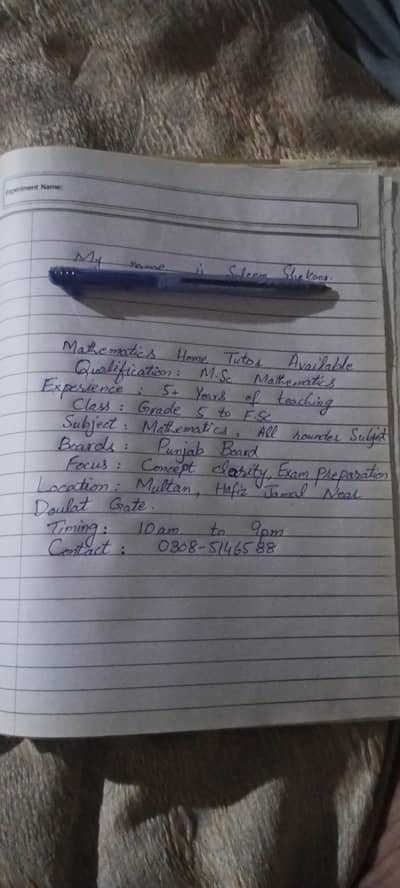 Experiment Name:
My name is Saleem Shakoor.
Mathematics Home Tutor Available
Qualification: M.Sc Mathematics
Experience : 5+ Years of teaching
Class : Grade 5 to F.Sc
Subject : Mathematics, All rounder Subject
Boards : Punjab Board
Focus : Concept clarity, Exam Preparation
Location : Multan, Hafiz Jamal Near
Doulat Gate.
Timing : 10 am to 9pm
Contact : 0308-5146588